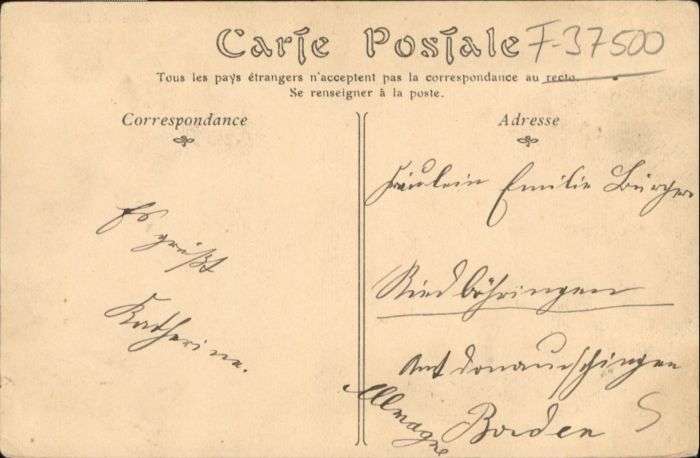 Carte Postale
F-37500
Tous les pays étrangers n'acceptent pas la correspondance au recto.
Se renseigner à la poste.
Correspondance
Es
grüßt
Katherine.
Adresse
Fräulein Emilie Bürger
Riedböhringen
Amt Donaueschingen
Allmagne
Baden